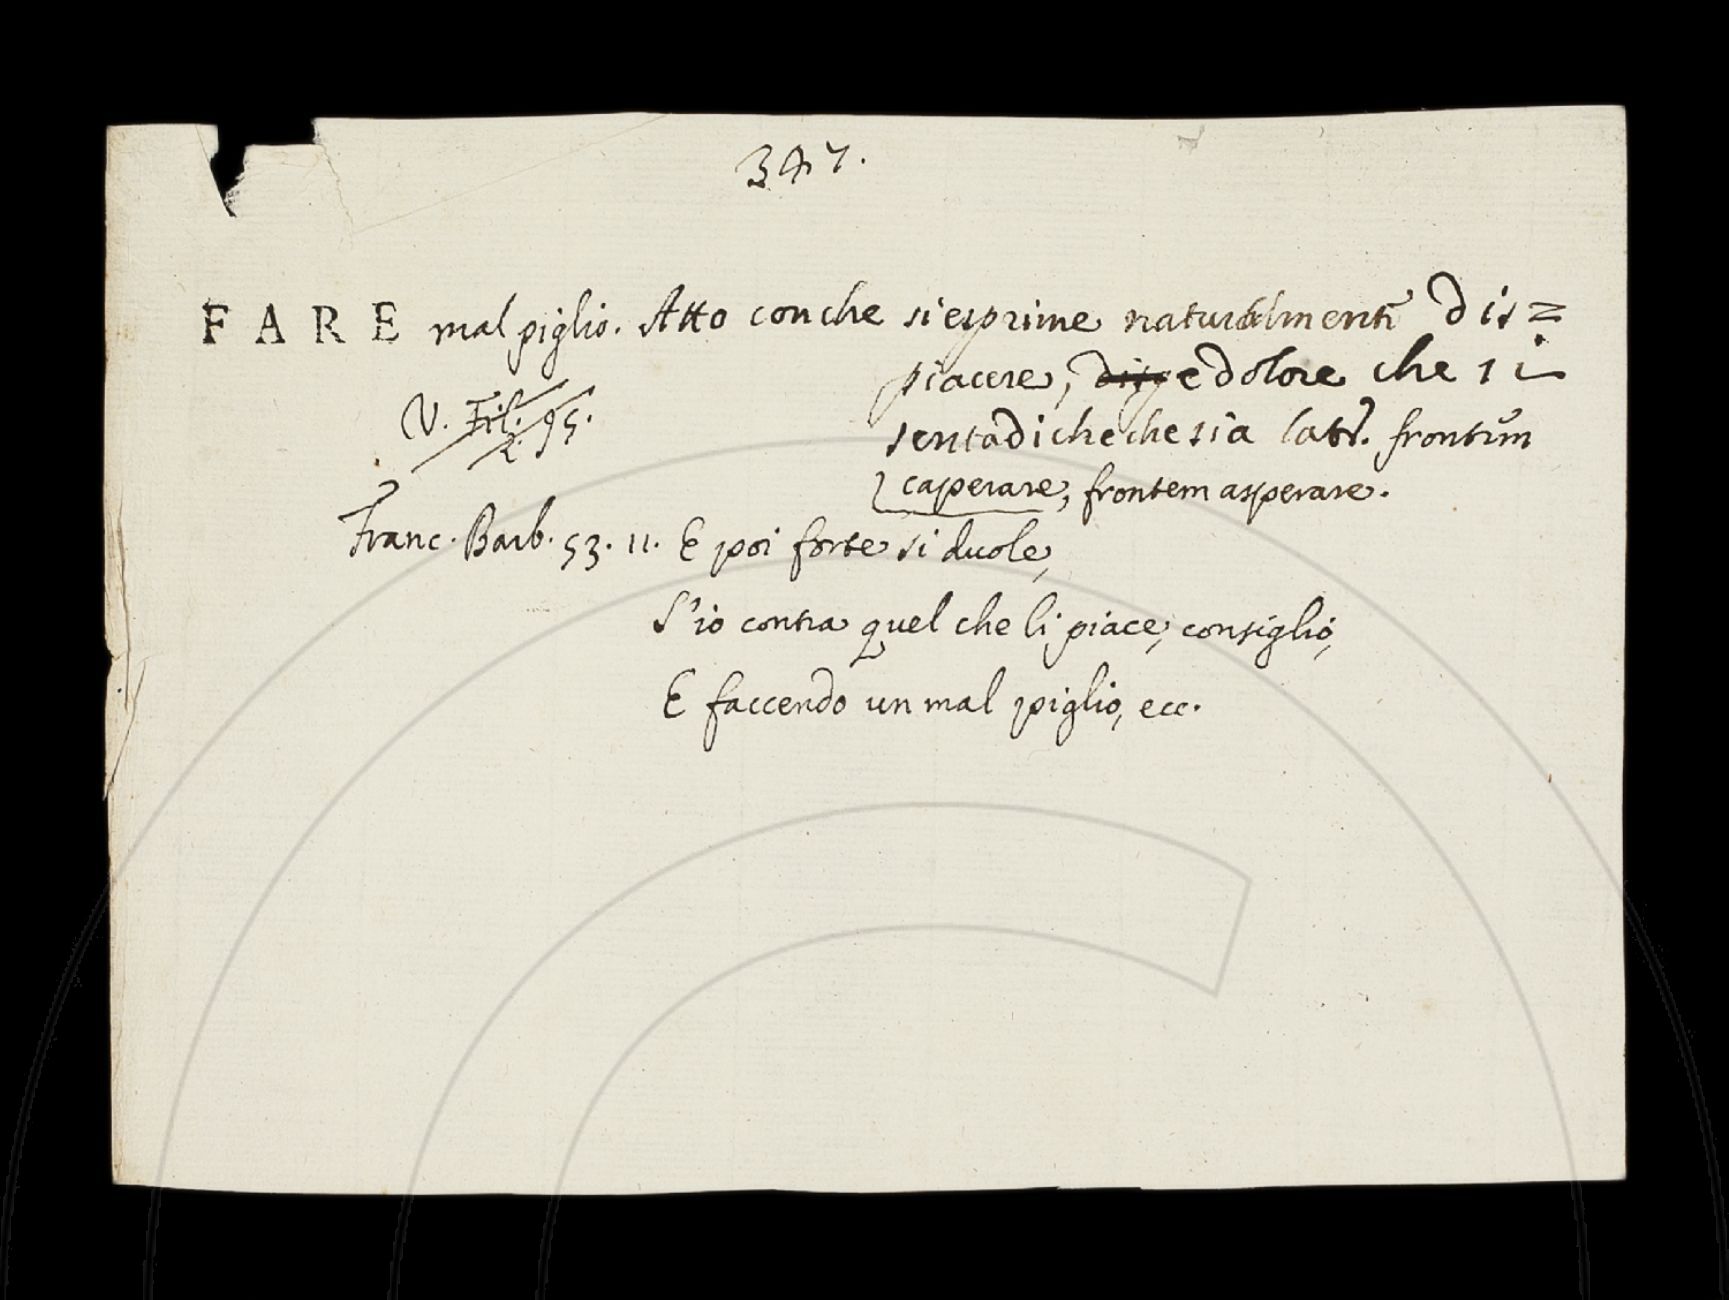 347.
FARE mal piglio. Atto con che si esprime naturalmente dis=
piacere, e dolore che si
senta di che che sia lat. frontem
caperare, frontem asperare.
V. Fil. 2. 95.
Franc. Barb. 53. 11. E poi forte si duole,
S'io contra quel che li piace, consiglio,
E faccendo un mal piglio, ecc.